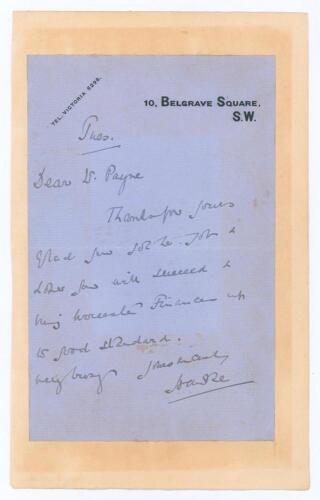 TEL. VICTORIA 8298.
10, BELGRAVE SQUARE,
S.W.
Tues.
Dear D. Payne
Thanks for yours
Glad you got the job &
hope you will succeed &
bring Worcester Finances up
to good standard.
Yours truly
Hawke